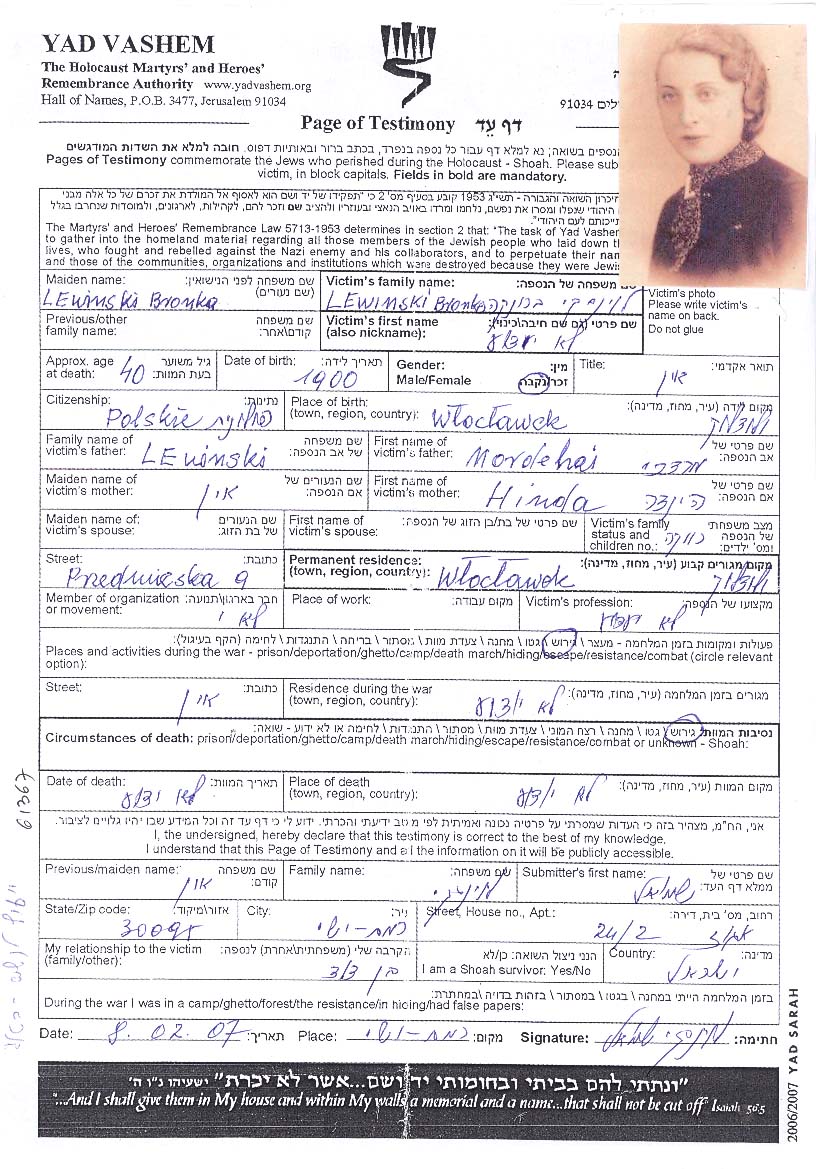 YAD VASHEM
The Holocaust Martyrs' and Heroes'
Remembrance Authority www.yadvashem.org
Hall of Names, P.O. 3477, Jerusalem 91034
ה
לים 91034
Page of Testimony דף עֵד
הנספים בשואה; נא למלא דף עבור כל נספה בנפרד, בכתב ברור ובאותיות דפוס. חובה למלא את השדות המודגשים
Pages of Testimony commemorate the Jews who perished during the Holocaust - Shoah. Please sub
victim, in block capitals. Fields in bold are mandatory.
זיכרון השואה והגבורה - תשי"ג 1953 קובע בסעיף מס' 2 כי "תפקידו של יד ושם הוא לאסוף אל המולדת את זכרם של כל אלה מבני
היהודי שנפלו ומסרו את נפשם, נלחמו ומרדו באויב הנאצי ובעוזריו ולהציב שם וזכר להם, לקהילות, לארגונים, ולמוסדות שנחרבו בגלל
תייכותם לעם היהודי".
The Martyrs' and Heroes' Remembrance Law 5713-1953 determines in section 2 that: "The task of Yad Vasher
to gather into the homeland material regarding all those members of the Jewish people who laid down t
lives, who fought and rebelled against the Nazi enemy and his collaborators, and to perpetuate their nam
and those of the communities, organizations and institutions which were destroyed because they were Jewis
Maiden name: שם משפחה לפני הנישואין:
(שם נעורים)
LEWINSKI Bronka
Victim's family name: שם משפחה של הנספה:
LEWINSKI Bronka לוינסקי ברונקה
Victim's photo
Please write victim's
name on back.
Do not glue
Previous/other שם משפחה
family name: קודם\אחר:
Victim's first name שם פרטי (גם שם חיבה\כינוי):
(also nickname): לא ידוע
Approx. age גיל משוער
at death: 40 בעת המוות:
Date of birth: תאריך לידה:
1900
Gender: מין:
Male/Female זכר/נקבה
Title: תואר אקדמי:
אין
Citizenship: נתינות:
Polskie פולנית
Place of birth: מקום לידה (עיר, מחוז, מדינה):
(town, region, country): Włocławek
Family name of שם משפחה
victim's father: LEWinski של אב הנספה:
First name of שם פרטי של
victim's father: Mordehai מרדכי אב הנספה:
Maiden name of שם הנעורים של
victim's mother: אין אם הנספה:
First name of שם פרטי של
victim's mother: Hinda הינדה אם הנספה:
Maiden name of: שם הנעורים
victim's spouse: של בת הזוג:
First name of שם פרטי של בת/בן הזוג של הנספה:
victim's spouse:
Victim's family מצב משפחתי
status and של הנספה
children no.: ומס' ילדים:
Street: כתובת:
9
Permanent residence: מקום מגורים קבוע (עיר, מחוז, מדינה):
(town, region, country): Włocławek
Member of organization חבר בארגון\תנועה:
or movement:
Place of work: מקום עבודה:
Victim's profession: מקצועו של הנספה:
לא ידוע
פעולות ומקומות בזמן המלחמה - מעצר \ גירוש \ גטו \ מחנה \ צעדת מוות \ מסתור \ בריחה \ התנגדות \ לחימה (הקף בעיגול):
Places and activities during the war - prison/deportation/ghetto/camp/death march/hiding/escape/resistance/combat (circle relevant
option):
Street: כתובת:
אין
Residence during the war מגורים בזמן המלחמה (עיר, מחוז, מדינה):
(town, region, country): לא ידוע
נסיבות המוות: גירוש \ גטו \ מחנה \ רצח המוני \ צעדת מוות \ מסתור \ התנגדות \ לחימה או לא ידוע - שואה:
Circumstances of death: prison/deportation/ghetto/camp/death march/hiding/escape/resistance/combat or unknown - Shoah:
Date of death: תאריך המוות:
לא ידוע
Place of death מקום המוות (עיר, מחוז, מדינה):
(town, region, country): לא ידוע
אני, הח"מ, מצהיר בזה כי העדות שמסרתי על פרטיה נכונה ואמיתית לפי מיטב ידיעתי והכרתי. ידוע לי כי דף עד זה וכל המידע שבו יהיו גלויים לציבור.
I, the undersigned, hereby declare that this testimony is correct to the best of my knowledge.
I understand that this Page of Testimony and all the information on it will be publicly accessible.
Previous/maiden name: שם משפחה
קודם:
אין
Family name: שם משפחה:
Submitter's first name: שם פרטי של
ממלא דף העד:
שמואל
State/Zip code: אזור\מיקוד:
City: עיר:
רמת-ישי
Street, House no., Apt.: רחוב, מס' בית, דירה:
24/2
My relationship to the victim הקרבה שלי (משפחתית\אחרת) לנספה:
(family/other): בן דוד
הנני ניצול השואה: כן/לא
I am a Shoah survivor: Yes/No
Country: מדינה:
ישראל
בזמן המלחמה הייתי במחנה \ בגטו \ במסתור \ בזהות בדויה \במחתרת:
During the war I was in a camp/ghetto/forest/the resistance/in hiding/had false papers:
Date: 8.02.07 תאריך: Place: רמת-ישי מקום: Signature: חתימה:
"ונתתי להם בביתי ובחומותי יד ושם...אשר לא יכרת" ישעיהו נ"ו ה'
"...And I shall give them in My house and within My walls a memorial and a name...that shall not be cut off" Isaiah 56:5
2006/2007 YAD SARAH